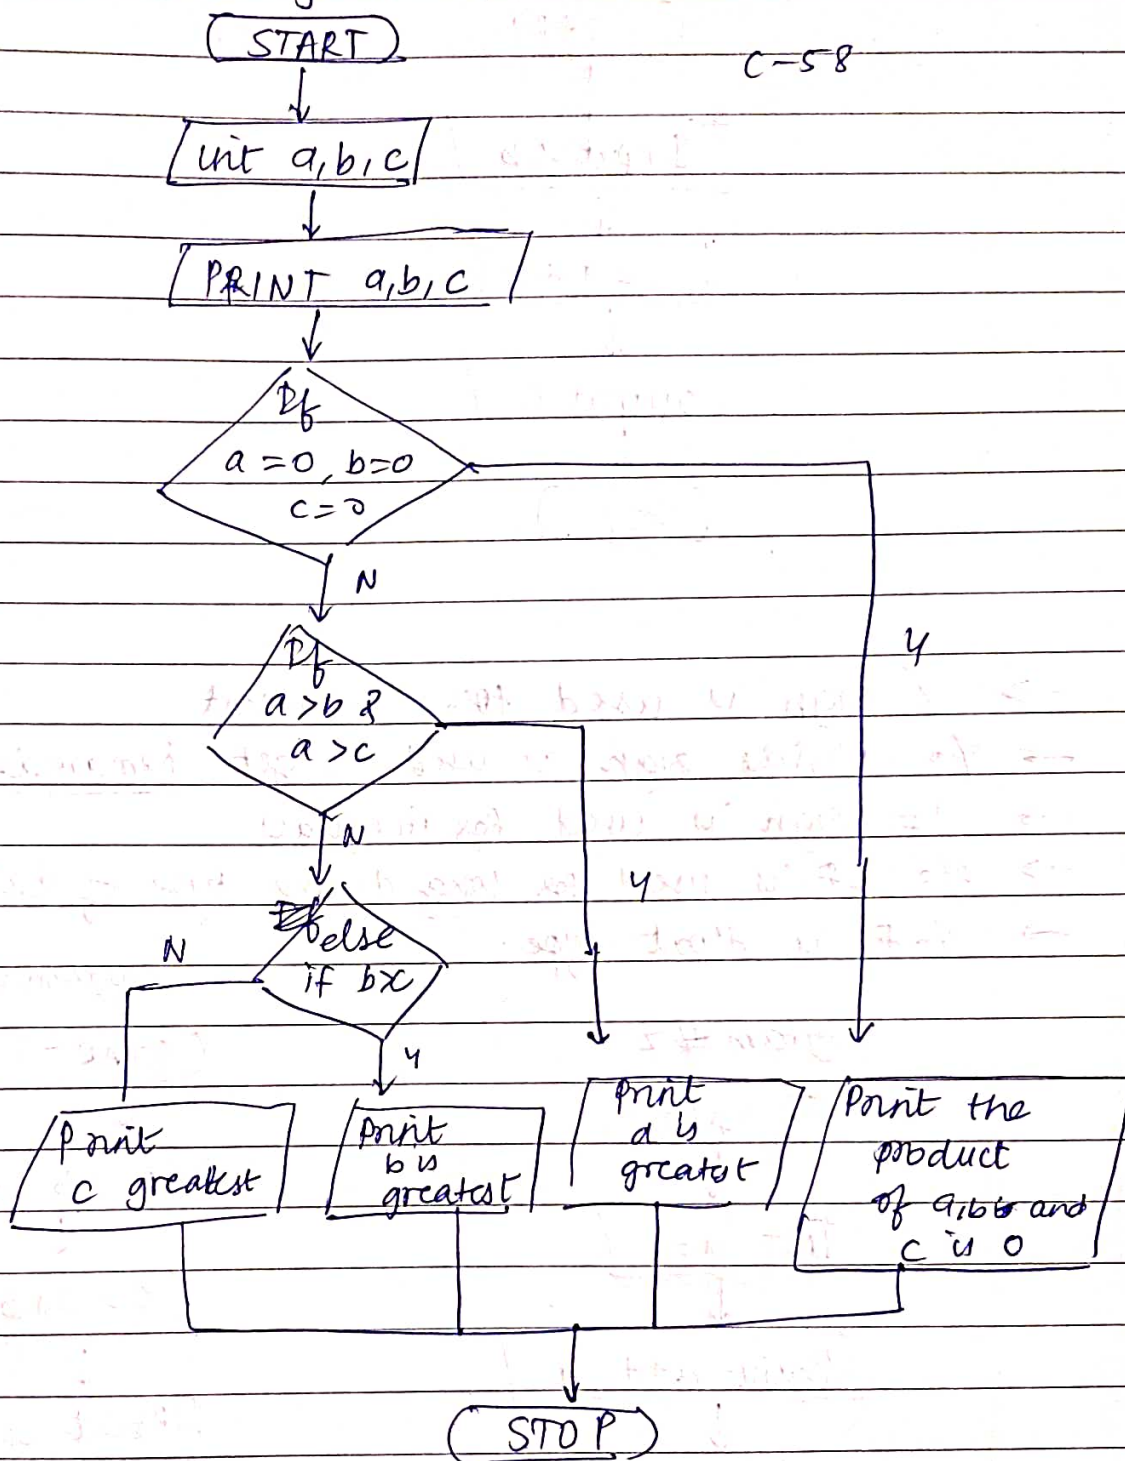 START
C-58
int a,b,c
PRINT a,b,c
If
a=0, b=0
c=0
N
Y
If
a>b &
a>c
N
Y
else
if b>c
N
Y
Print
c greatest
print
b is
greatest
print
a is
greatest
Print the
product
of a,b and
c is 0
STOP